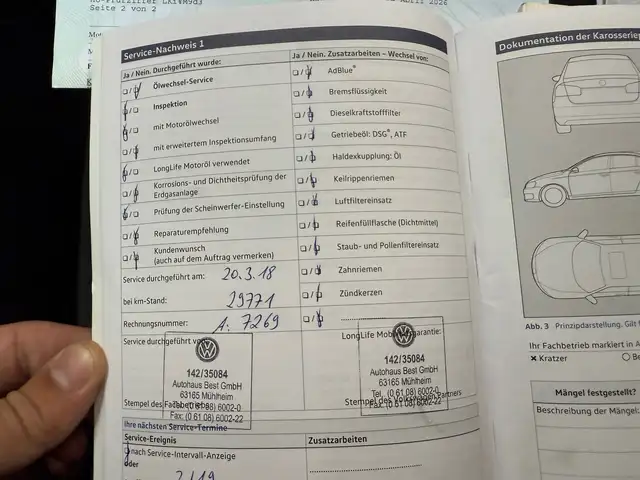 Seite 2 von 2
April 2026
Service-Nachweis 1
Ja / Nein. Durchgeführt wurde:
Ölwechsel-Service
Inspektion
mit Motorölwechsel
mit erweitertem Inspektionsumfang
LongLife Motoröl verwendet
Korrosions- und Dichtheitsprüfung der
Erdgasanlage
Prüfung der Scheinwerfer-Einstellung
Reparaturempfung
Kundenwunsch
(auch auf dem Auftrag vermerken)
Service durchgeführt am: 20.3.18
bei km-Stand: 29771
Rechnungsnummer: A: 7269
Service durchgeführt
142/35084
Autohaus Best GmbH
63165 Mühlheim
Tel. (0 61 08) 6002-0
Fax: (0 61 08) 6002-22
Stempel des
Ja / Nein. Zusatzarbeiten – Wechsel von:
AdBlue®
Bremsflüssigkeit
Dieselkraftstofffilter
Getriebeöl: DSG®, ATF
Haldexkupplung: Öl
Keilrippenriemen
Luftfiltereinsatz
Reifenfüllflasche (Dichtmittel)
Staub- und Pollenfiltereinsatz
Zahnriemen
Zündkerzen
LongLife Mobilitätsgarantie:
142/35084
Autohaus Best GmbH
63165 Mühlheim
Tel. (0 61 08) 6002-0
Fax: (0 61 08) 6002-22
Stempel des Volkswagen Partners
Ihre nächsten Service-Termine
Service-Ereignis
Zusatzarbeiten
nach Service-Intervall-Anzeige
oder
Dokumentation der Karosserie
Abb. 3 Prinzipdarstellung. Gilt
Ihr Fachbetrieb markiert in
× Kratzer
Mängel festgestellt?
Beschreibung der Mängel: